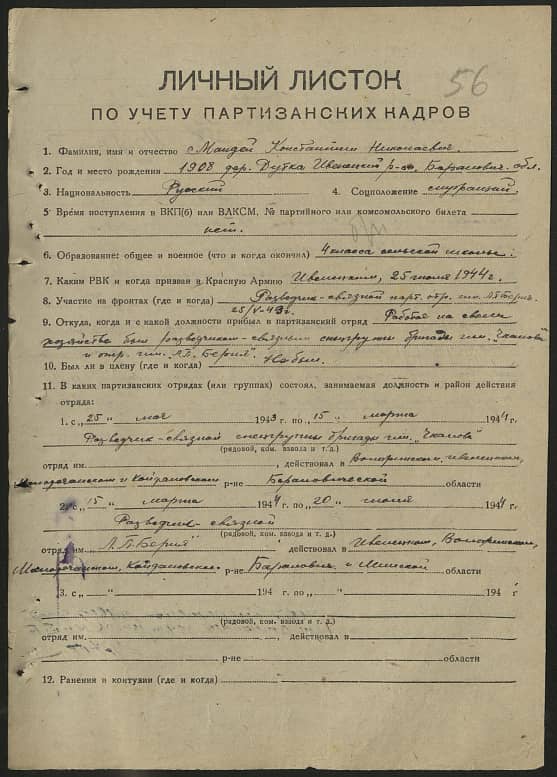 56
ЛИЧНЫЙ ЛИСТОК
ПО УЧЕТУ ПАРТИЗАНСКИХ КАДРОВ
1. Фамилия, имя и отчество Константин Николаевич.
2. Год и место рождения 1908 дер. Дутка Ивенецкий р-на, Баранович. обл.
3. Национальность Русский 4. Соцположение служащий.
5. Время поступления в ВКП(б) или ВЛКСМ, № партийного или комсомольского билета
нет.
6. Образование: общее и военное (что и когда окончил) 4 класса сельской школы.
7. Каким РВК и когда призван в Красную Армию Ивенецким, 25 июля 1944 г.
8. Участие на фронтах (где и когда) Разведчик-связной парт. отр. им. А.П. Берия.
25/V-43 г.
9. Откуда, когда и с какой должности прибыл в партизанский отряд Работая на своем
хозяйстве был разведчиком-связным спецгруппы бригады им. "Чкалова"
и отр. им. "Л.П. Берия".
10. Был ли в плену (где и когда) Не был.
11. В каких партизанских отрядах (или группах) состоял, занимаемая должность и район действия
отряда:
1. с „25 „ мая 1943 г. по „15 „ марта 1944 г.
Разведчик-связной спецгруппы бригады им. "Чкалова"
(рядовой, ком. взвода и т. д.)
отряд им. , действовал в Воложинском, Ивенецком,
Молодечанском и Койдановском р-не Барановической области
2. с „15 „ марта 1944 г. по „20 „ июля 1944 г.
Разведчик-связной
(рядовой, ком. взвода и т. д.)
отряд им. Л.П. Берия" действовал в Ивенецком, Воложинском,
Молодечанском, Койдановском р-не Баранович. и Минской области
3. с „ „ 194 г. по „ „ 194 г
(рядовой, ком. взвода и т. д.)
отряд им. , действовал в
р-не области
12. Ранения и контузии (где и когда)